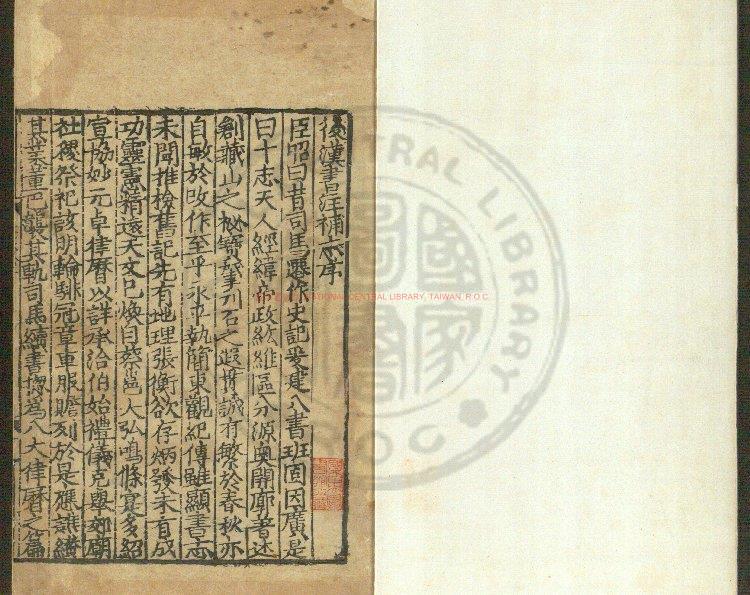 後漢書注補志序
臣昭曰昔司馬遷作史記爰建八書班固因廣是
曰十志天人經緯帝政紘維區分源奥開廓著述
創藏山之秘寶肇刊石之遐貫誠有繁於春秋亦
自敏於改作至乎永平執簡東觀紀傳雖顯書志
未聞推檢舊記先有地理張衡欲存炳發未有成
功靈憲精遠天文已煥自蔡邕大弘鳴條寔多紹
宣協妙元卓律曆以詳承洽伯始禮儀克舉郊廟
社稷祭祀該明輪騑冠章車服贍列於是應譙纘
其業董巴襲其軌司馬續書揔為八大律曆之篇
NATIONAL CENTRAL LIBRARY, TAIWAN, R.O.C.
CENTRAL LIBRARY
ROC